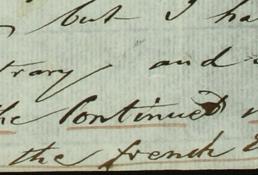 but I ha
trary and
the Continued
the french